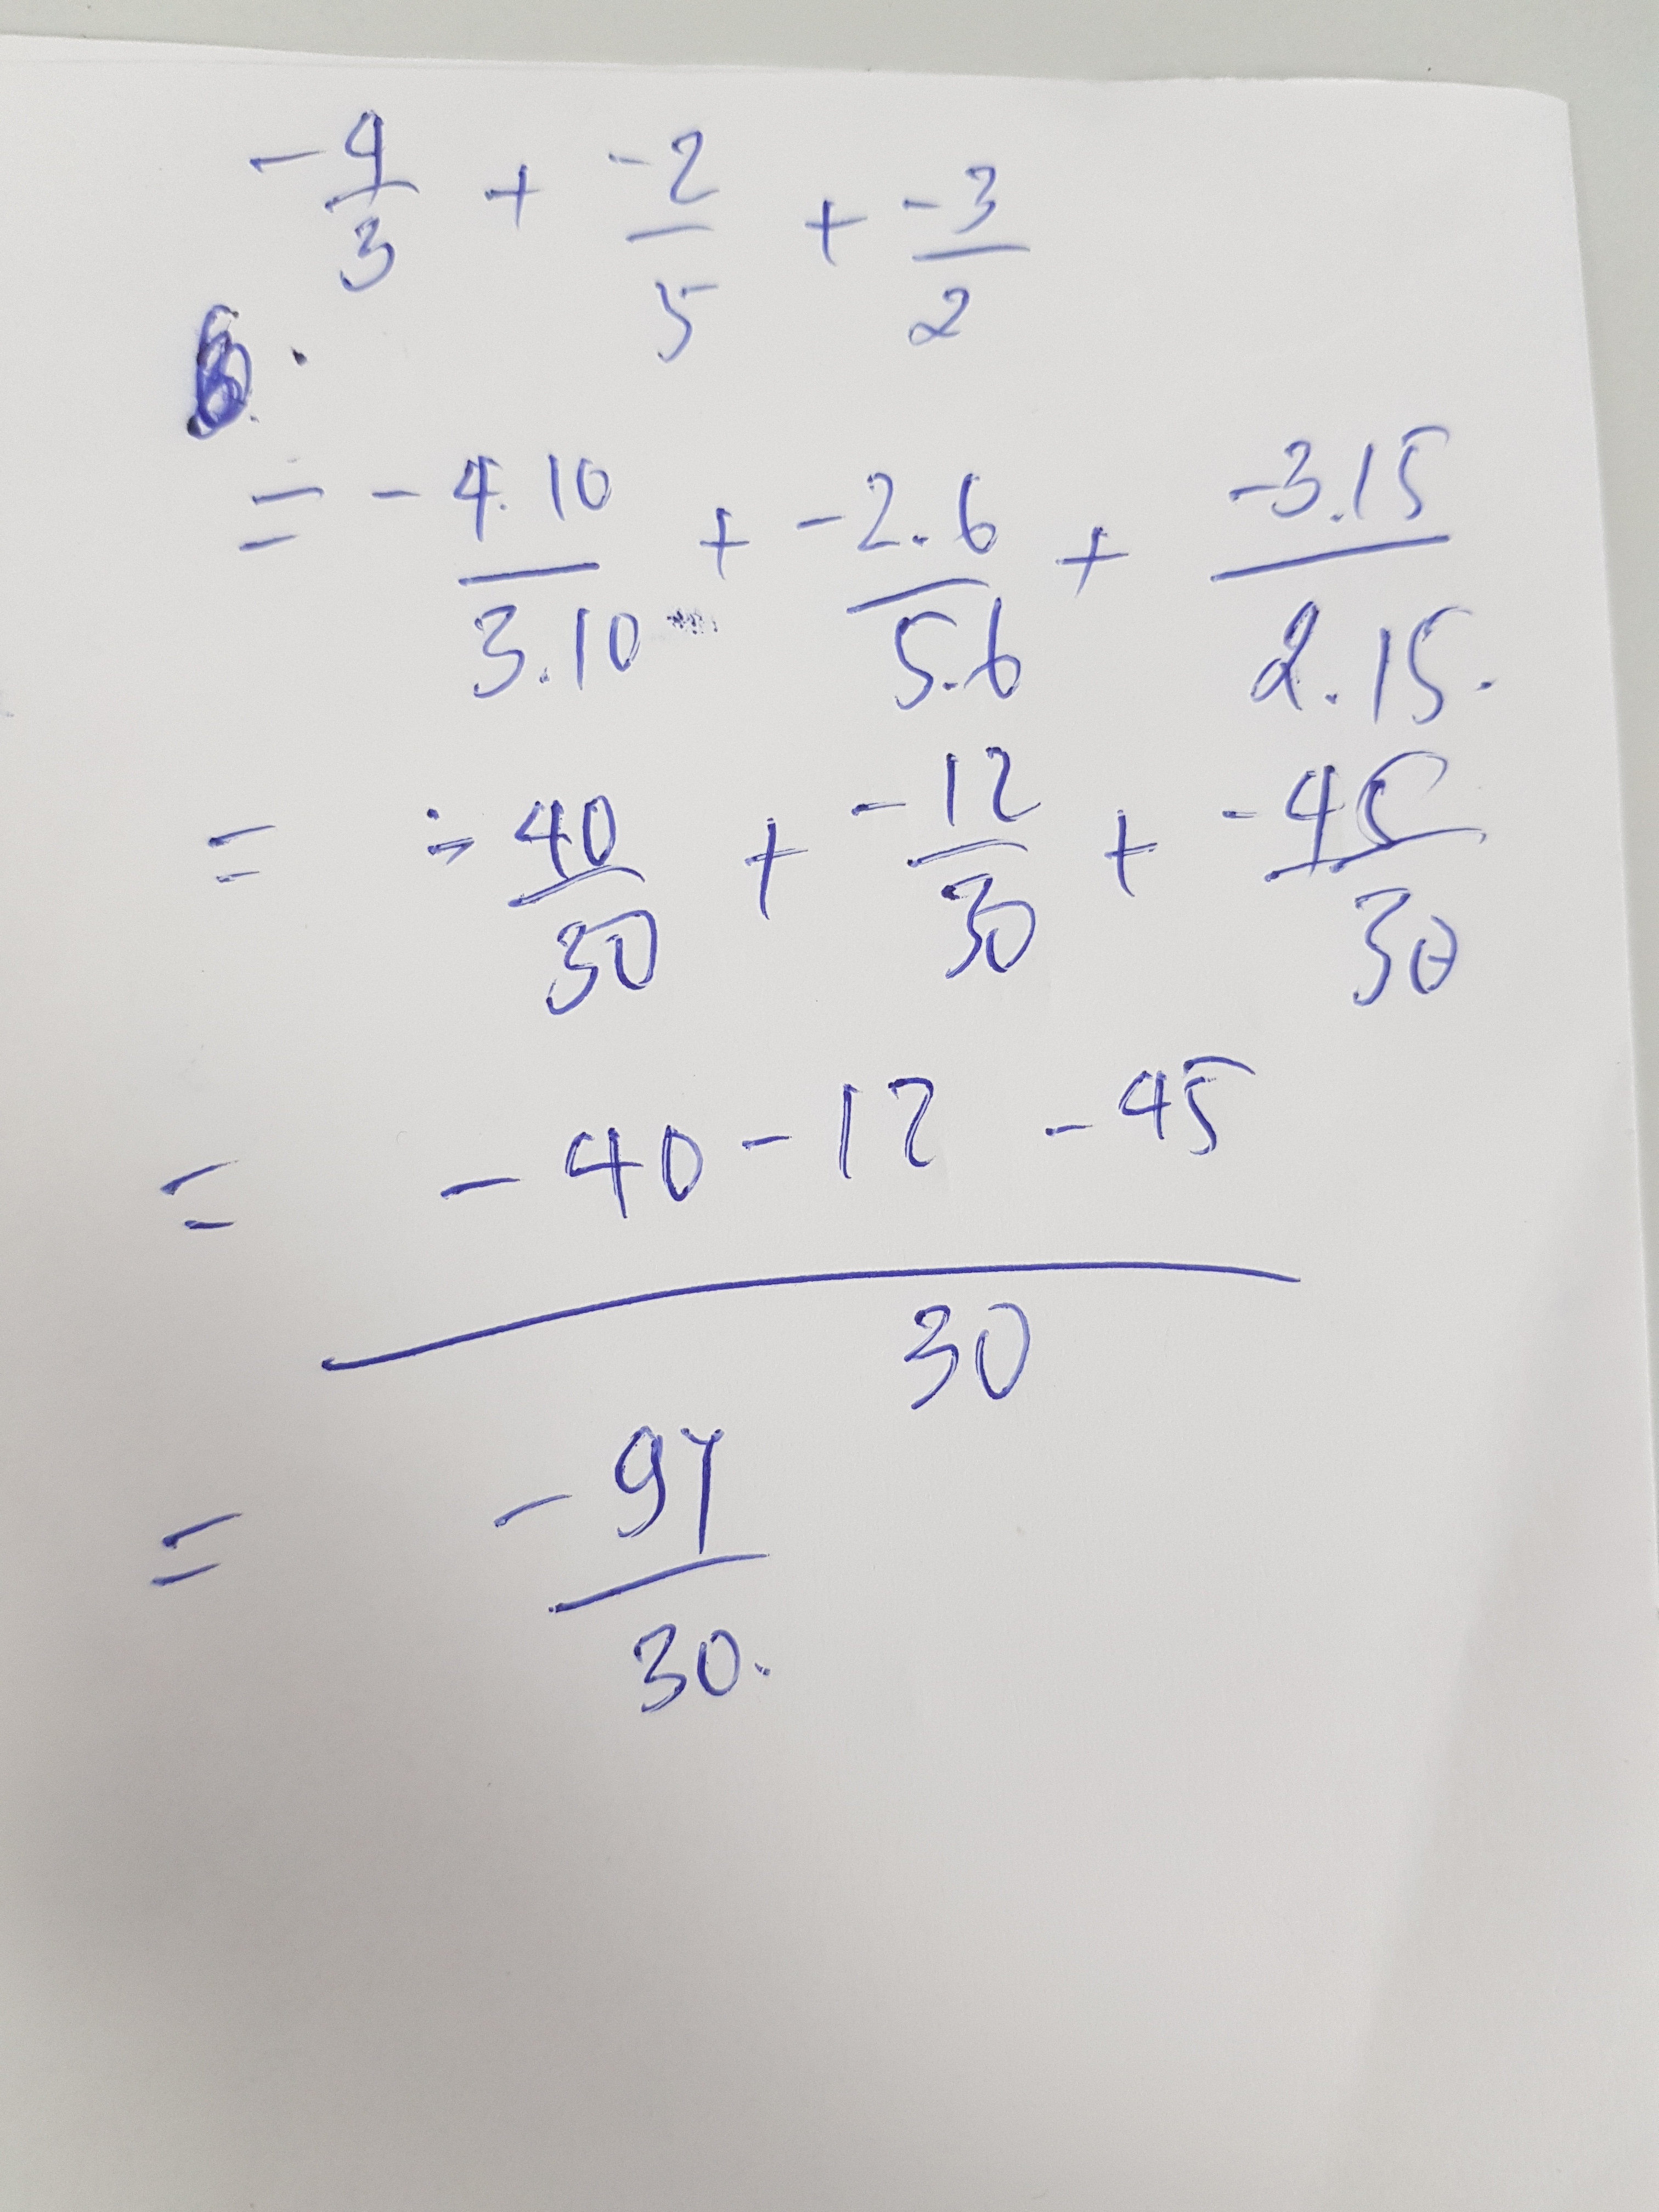 -4/3 + -2/5 + -3/2
= -4.10/3.10 + -2.6/5.6 + -3.15/2.15.
= -40/30 + -12/30 + -45/30
= -40-12-45/30
= -97/30.